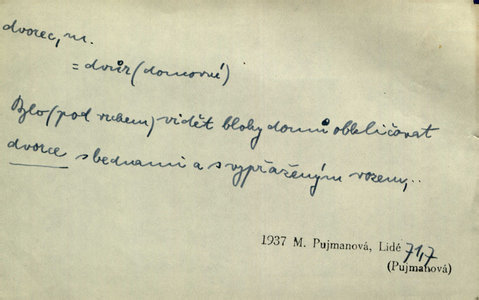 dvorec, m.
= dvůr (domovní)
Bylo (pod vrchem) vidět bloky domů obkličovat
dvorce s bednami a s vypřaženým vozem,..
1937 M. Pujmanová, Lidé 71,7
(Pujmanová)